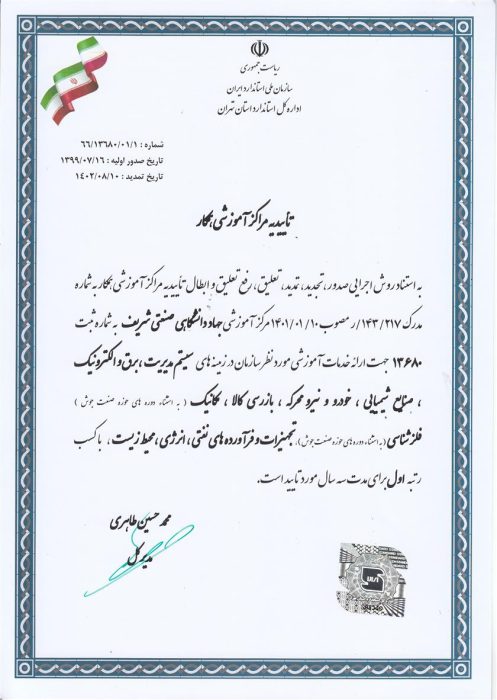 ریاست جمهوری
سازمان ملی استاندارد ایران
اداره کل استاندارد استان تهران
شماره : ۶۶/۱۳۶۸۰/۰۱/۱
تاریخ صدور اولیه : ۱۳۹۹/۰۷/۱۶
تاریخ تمدید : ۱۴۰۲/۰۸/۱۰
تأییدیه مراکز آموزشی همکار
به استناد روش اجرایی صدور، تجدید، تمدید، تعلیق، رفع تعلیق و ابطال تأییدیه مراکز آموزشی همکار به شماره
مدرک ۱۴۳/۲۱۷/ر مصوب ۱۴۰۱/۰۱/۱۰ مرکز آموزشی جهاد دانشگاهی صنعتی شریف به شماره ثبت
۱۳۶۸۰ جهت ارائه خدمات آموزشی مورد نظر سازمان در زمینه های سیستم مدیریت، برق و الکترونیک
، صنایع شیمیایی ، خودرو و نیرو محرکه ، بازرسی کالا ، مکانیک ( به استثناء دوره های حوزه صنعت جوش )
فلزشناسی (به استثناء دوره های حوزه صنعت جوش)، تجهیزات و فرآورده های نفتی، انرژی، محیط زیست، با کسب
رتبه اول برای مدت سه سال مورد تایید است.
محمد حسین طاهری
مدیر کل